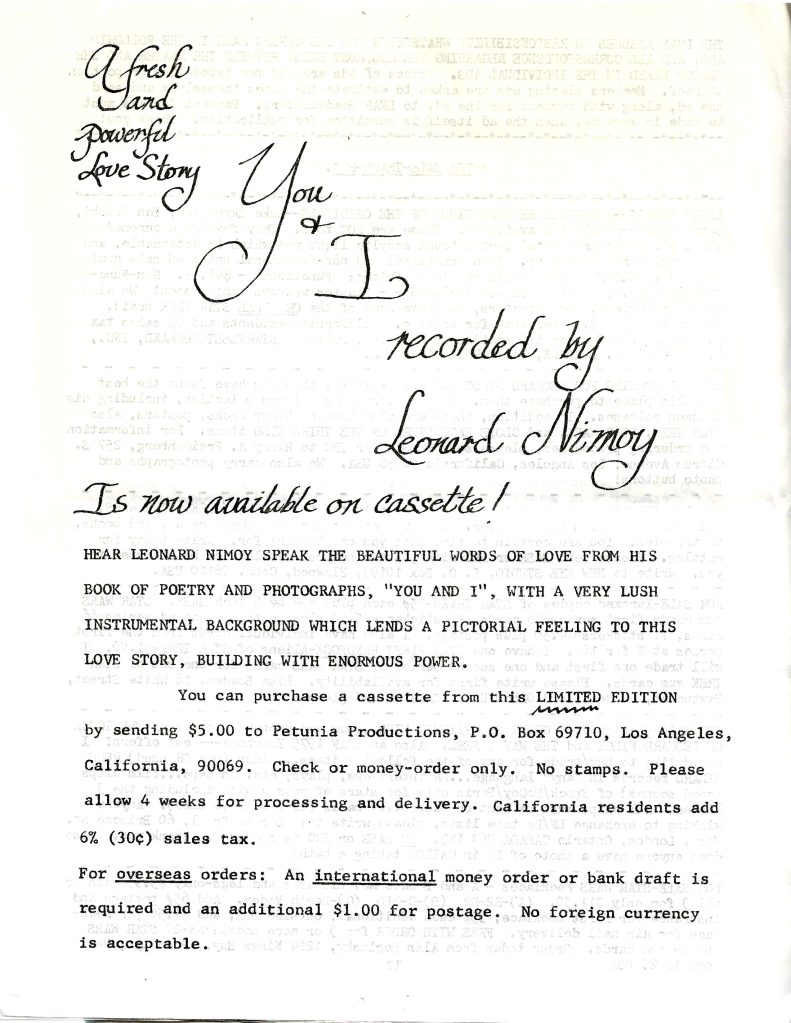 A fresh
and
powerful
Love Story
You
&
I
recorded by
Leonard Nimoy
Is now available on cassette!
HEAR LEONARD NIMOY SPEAK THE BEAUTIFUL WORDS OF LOVE FROM HIS
BOOK OF POETRY AND PHOTOGRAPHS, "YOU AND I", WITH A VERY LUSH
INSTRUMENTAL BACKGROUND WHICH LENDS A PICTORIAL FEELING TO THIS
LOVE STORY, BUILDING WITH ENORMOUS POWER.
You can purchase a cassette from this LIMITED EDITION
by sending $5.00 to Petunia Productions, P.O. Box 69710, Los Angeles,
California, 90069. Check or money-order only. No stamps. Please
allow 4 weeks for processing and delivery. California residents add
6% (30¢) sales tax.
For overseas orders: An international money order or bank draft is
required and an additional $1.00 for postage. No foreign currency
is acceptable.